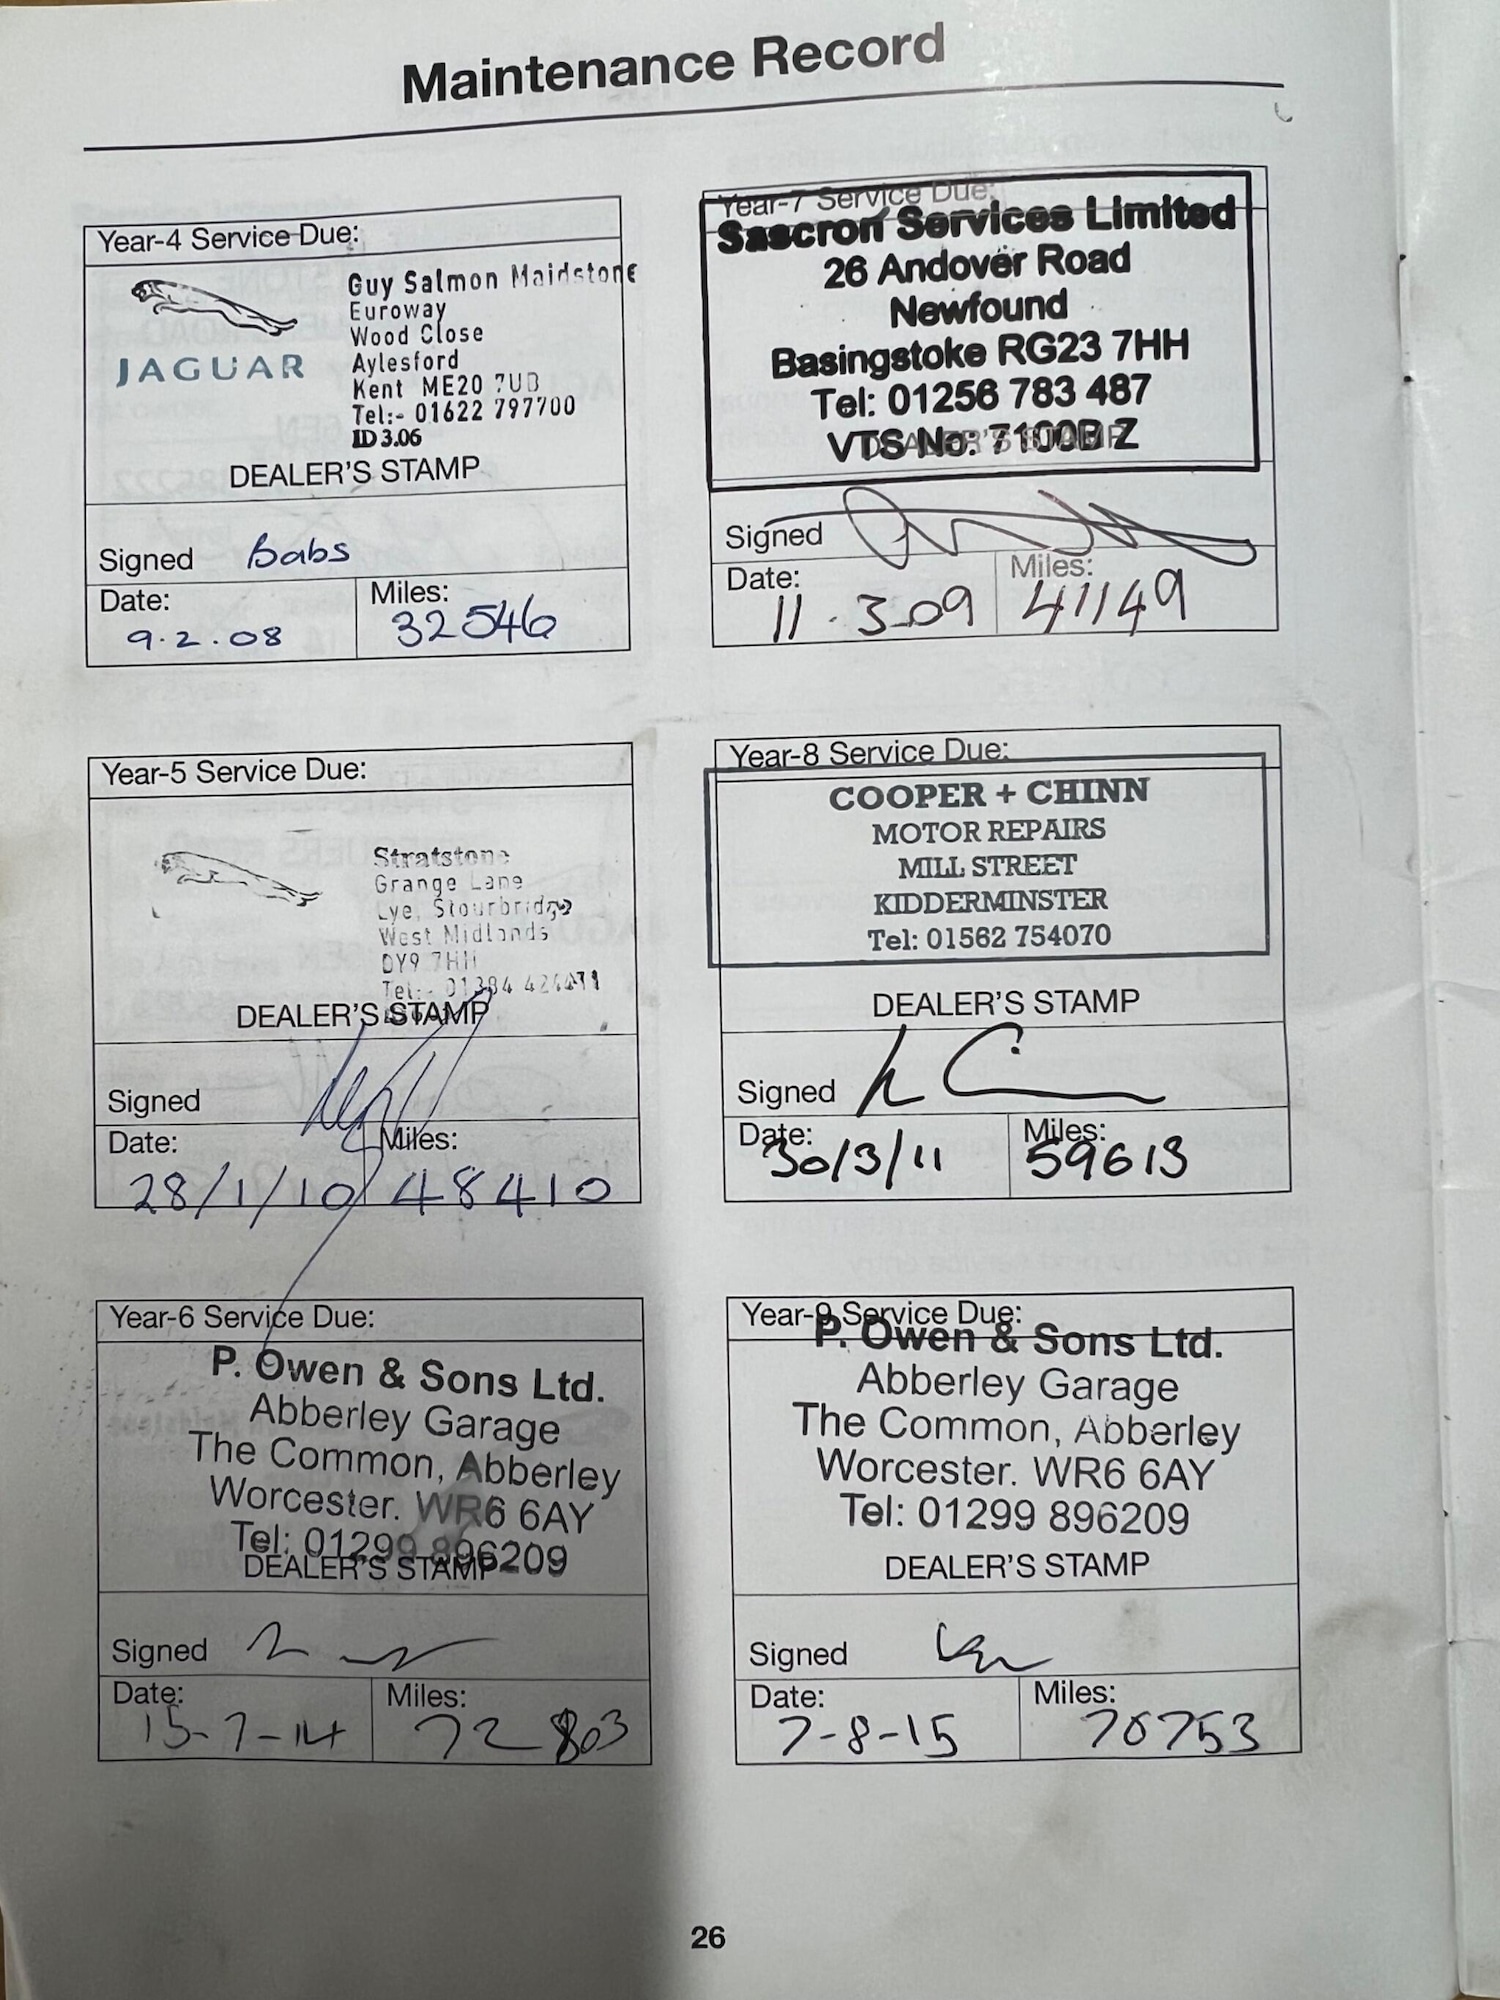 Maintenance Record
Year-4 Service Due:
JAGUAR
Guy Salmon Maidstone
Euroway
Wood Close
Aylesford
Kent ME20 7UB
Tel:- 01622 797700
ID 3.06
DEALER'S STAMP
Signed Babs
Date: 9.2.08
Miles: 32546
Year-7 Service Due:
Sascron Services Limited
26 Andover Road
Newfound
Basingstoke RG23 7HH
Tel: 01256 783 487
VTS No: 7100BZ
DEALER'S STAMP
Signed
Date: 11.3.09
Miles: 41149
Year-5 Service Due:
Stratstone
Grange Lane
Lye, Stourbridge
West Midlands
DY9 7HH
Tel:- 01384
DEALER'S STAMP
Signed
Date: 28/1/10
Miles: 48410
Year-8 Service Due:
COOPER + CHINN
MOTOR REPAIRS
MILL STREET
KIDDERMINSTER
Tel: 01562 754070
DEALER'S STAMP
Signed
Date: 30/3/11
Miles: 59613
Year-6 Service Due:
P. Owen & Sons Ltd.
Abberley Garage
The Common, Abberley
Worcester. WR6 6AY
Tel: 01299 896209
DEALER'S STAMP
Signed
Date: 15-7-14
Miles: 72 803
Year-9 Service Due:
P. Owen & Sons Ltd.
Abberley Garage
The Common, Abberley
Worcester. WR6 6AY
Tel: 01299 896209
DEALER'S STAMP
Signed
Date: 7-8-15
Miles:
26